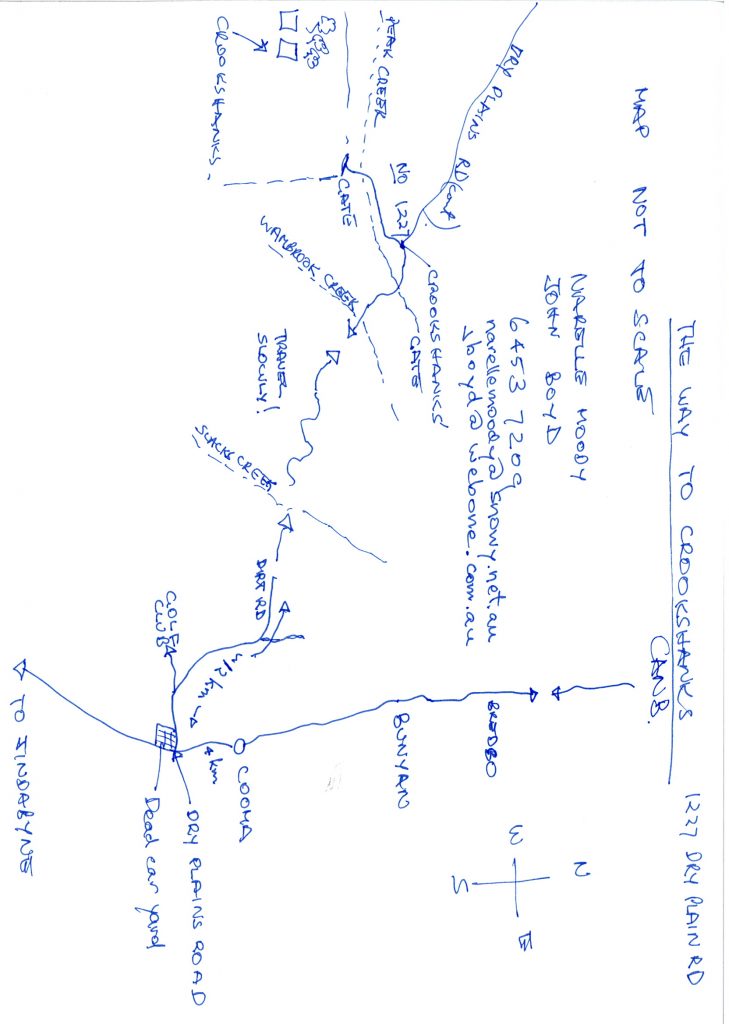 THE WAY TO CROOKSHANKS
1227 DRY PLAIN RD
MAP NOT TO SCALE
CANB.
NARELLE MOODY
JOHN BOYD
6453 7209
narellemoody@snowy.net.au
jboyd@webone.com.au
N
W
E
S
DRY PLAINS RD (cont.)
PEAK CREEK
NO 1227
CROOKSHANKS'
GATE
GATE
CROOKSHANKS
WAMBROOK CREEK
TRAVEL
SLOWLY!
SLACKS CREEK
DIRT RD
BREDBO
BUNYAN
COOMA
km
4 km
GOLF
CLUB
DRY PLAINS ROAD
Dead car yard
TO JINDABYNE